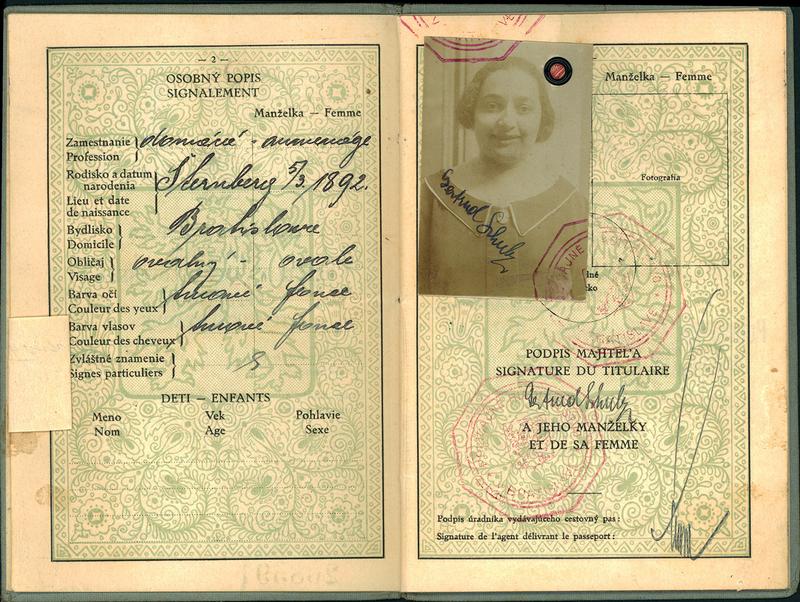 — 2 —
OSOBNÝ POPIS
SIGNALEMENT
Manželka — Femme
Zamestnanie
Profession
Rodisko a dátum
narodenia
Šternberg 5/3. 1892.
Lieu et date
de naissance
Bydlisko
Domicile
Bratislava
Obličaj
Visage
oválný - ovale
Barva očí
Couleur des yeux
tmavé foncé
Barva vlasov
Couleur des cheveux
tmavé foncé
Zvláštné znamenie
Signes particuliers
DETI — ENFANTS
Meno Vek Pohlavie
Nom Age Sexe
Manželka — Femme
Fotografia
Gertrud Schulz
PODPIS MAJITEĽA
SIGNATURE DU TITULAIRE
Gertrud Schulz
A JEHO MANŽELKY
ET DE SA FEMME
Podpis úradníka vydávajúceho cestovný pas:
Signature de l'agent délivrant le passeport: